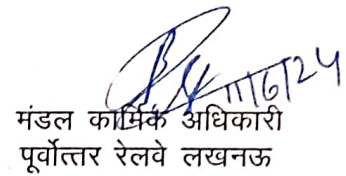 11/6/24
मंडल कार्मिक अधिकारी
पूर्वोत्तर रेलवे लखनऊ